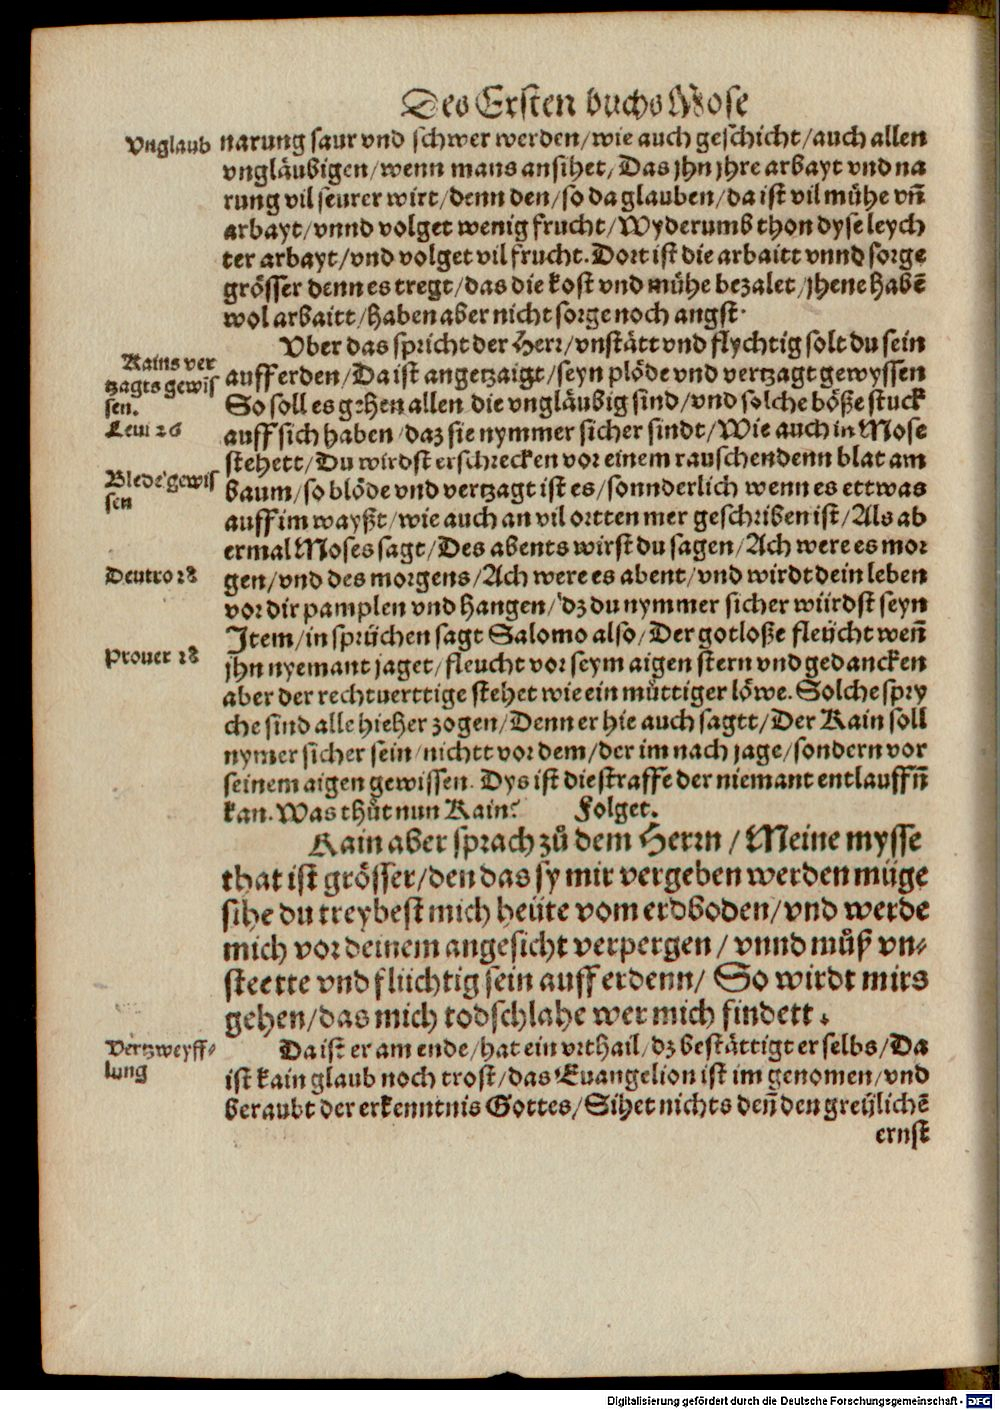 Des Ersten buchs Mose
Vnglaub
narung saur vnd schwer werden/wie auch geschicht/auch allen
vngläubigen/wenn mans ansihet/Das jhn jhre arbayt vnd na
rung vil seurer wirt/denn den/so da glauben/da ist vil mühe vn̄
arbayt/vnnd volget wenig frucht/Wyderumb thon dyse leych
ter arbayt/vnd volget vil frucht. Dort ist die arbaitt vnnd sorge
grösser denn es tregt/das die kost vnd mühe bezalet/jhene habē
wol arbaitt/haben aber nicht sorge noch angst.
Vber das spricht der Herr/vnstätt vnd flychtig solt du sein
Kains ver
tzagts gewis
sen.
auff erden/Da ist angetzaigt/seyn plöde vnd vertzagt gewyssen
So soll es gehen allen die vngläubig sind/vnd solche böße stuck
Leui 26
auff sich haben/daz sie nymmer sicher sindt/Wie auch in Mose
stehett/Du wirdst erschrecken vor einem rauschendenn blat am
Blede gewis
sen
baum/so blöde vnd vertzagt ist es/sonnderlich wenn es ettwas
auff im wayßt/wie auch an vil ortten mer geschriben ist/Als ab
ermal Moses sagt/Des abents wirst du sagen/Ach were es mor
Deutro 28
gen/vnd des morgens/Ach were es abent/vnd wirdt dein leben
vor dir pamplen vnd hangen/dz du nymmer sicher würdst seyn
Item/in sprüchen sagt Salomo also/Der gotloße fleücht wen̄
Prouer 28
jhn nyemant jaget/fleucht vor seym aigen stern vnd gedancken
aber der rechtuerttige stehet wie ein müttiger löwe. Solche spry
che sind alle hieher zogen/Denn er hie auch sagtt/Der Kain soll
nymer sicher sein/nichtt vor dem/der im nach jage/sondern vor
seinem aigen gewissen. Dys ist die straffe der niemant entlauffn̄
kan. Was thůt nun Kain? Folget.
Kain aber sprach zů dem Herrn/Meine mysse
that ist grösser/den das sy mir vergeben werden müge
sihe du treybest mich heüte vom erdboden/vnd werde
mich vor deinem angesicht verpergen/vnnd můß vn⸗
steette vnd flüchtig sein auff erdenn/So wirdt mirs
gehen/das mich todschlahe wer mich findett.
Vertzweyff⸗
lung
Da ist er am ende/hat ein vrthail/dz bestättigt er selbs/Da
ist kain glaub noch trost/das Euangelion ist im genomen/vnd
beraubt der erkenntnis Gottes/Sihet nichts den̄ den greüliche̅
ernst
Digitalisierung gefördert durch die Deutsche Forschungsgemeinschaft - DFG